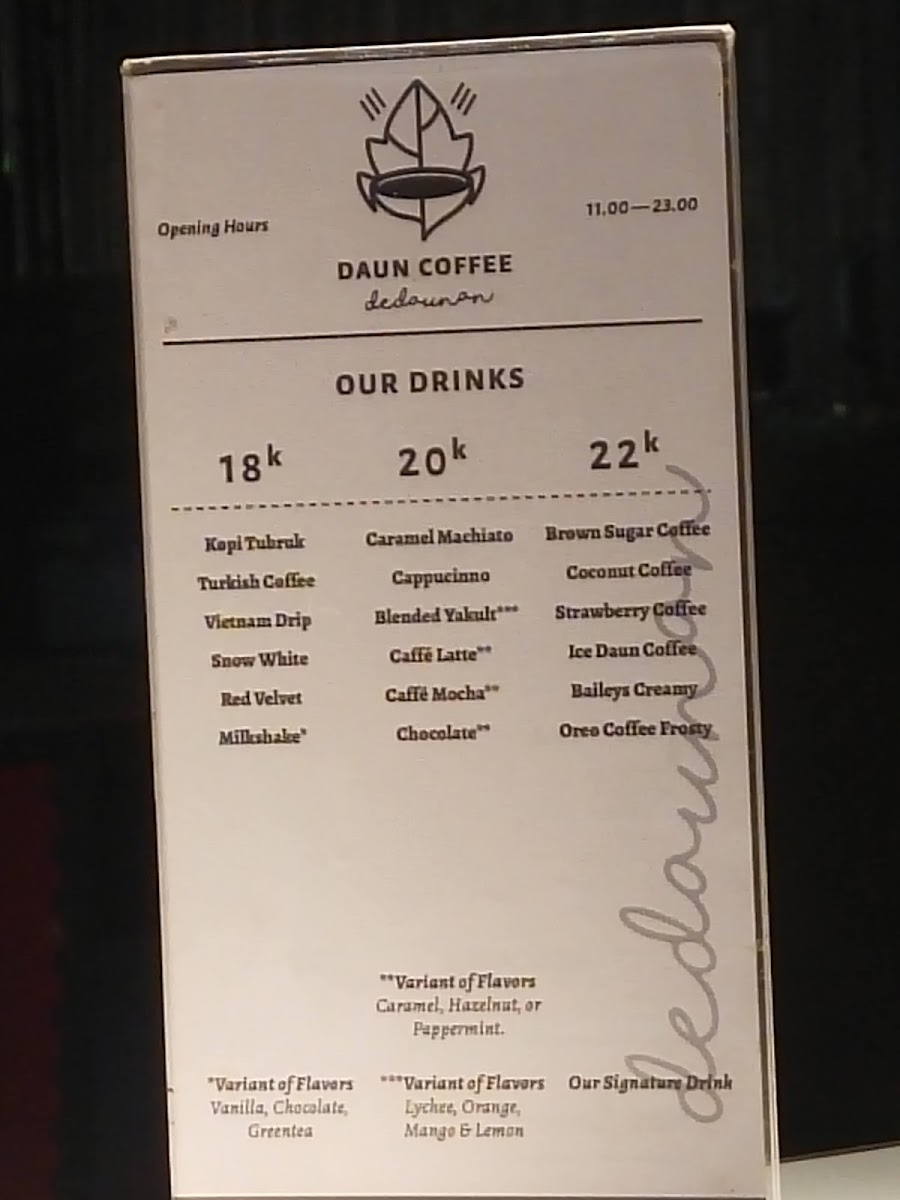 Opening Hours
11.00—23.00
DAUN COFFEE
dedaunan
OUR DRINKS
18k
20k
22k
Kopi Tubruk
Turkish Coffee
Vietnam Drip
Snow White
Red Velvet
Milkshake*
Caramel Machiato
Cappucinno
Blended Yakult***
Caffé Latte**
Caffé Mocha**
Chocolate**
Brown Sugar Coffee
Coconut Coffee
Strawberry Coffee
Ice Daun Coffee
Baileys Creamy
Oreo Coffee Frosty
**Variant of Flavors
Caramel, Hazelnut, or
Pappermint.
*Variant of Flavors
Vanilla, Chocolate,
Greentea
***Variant of Flavors
Lychee, Orange,
Mango & Lemon
Our Signature Drink
dedaunan